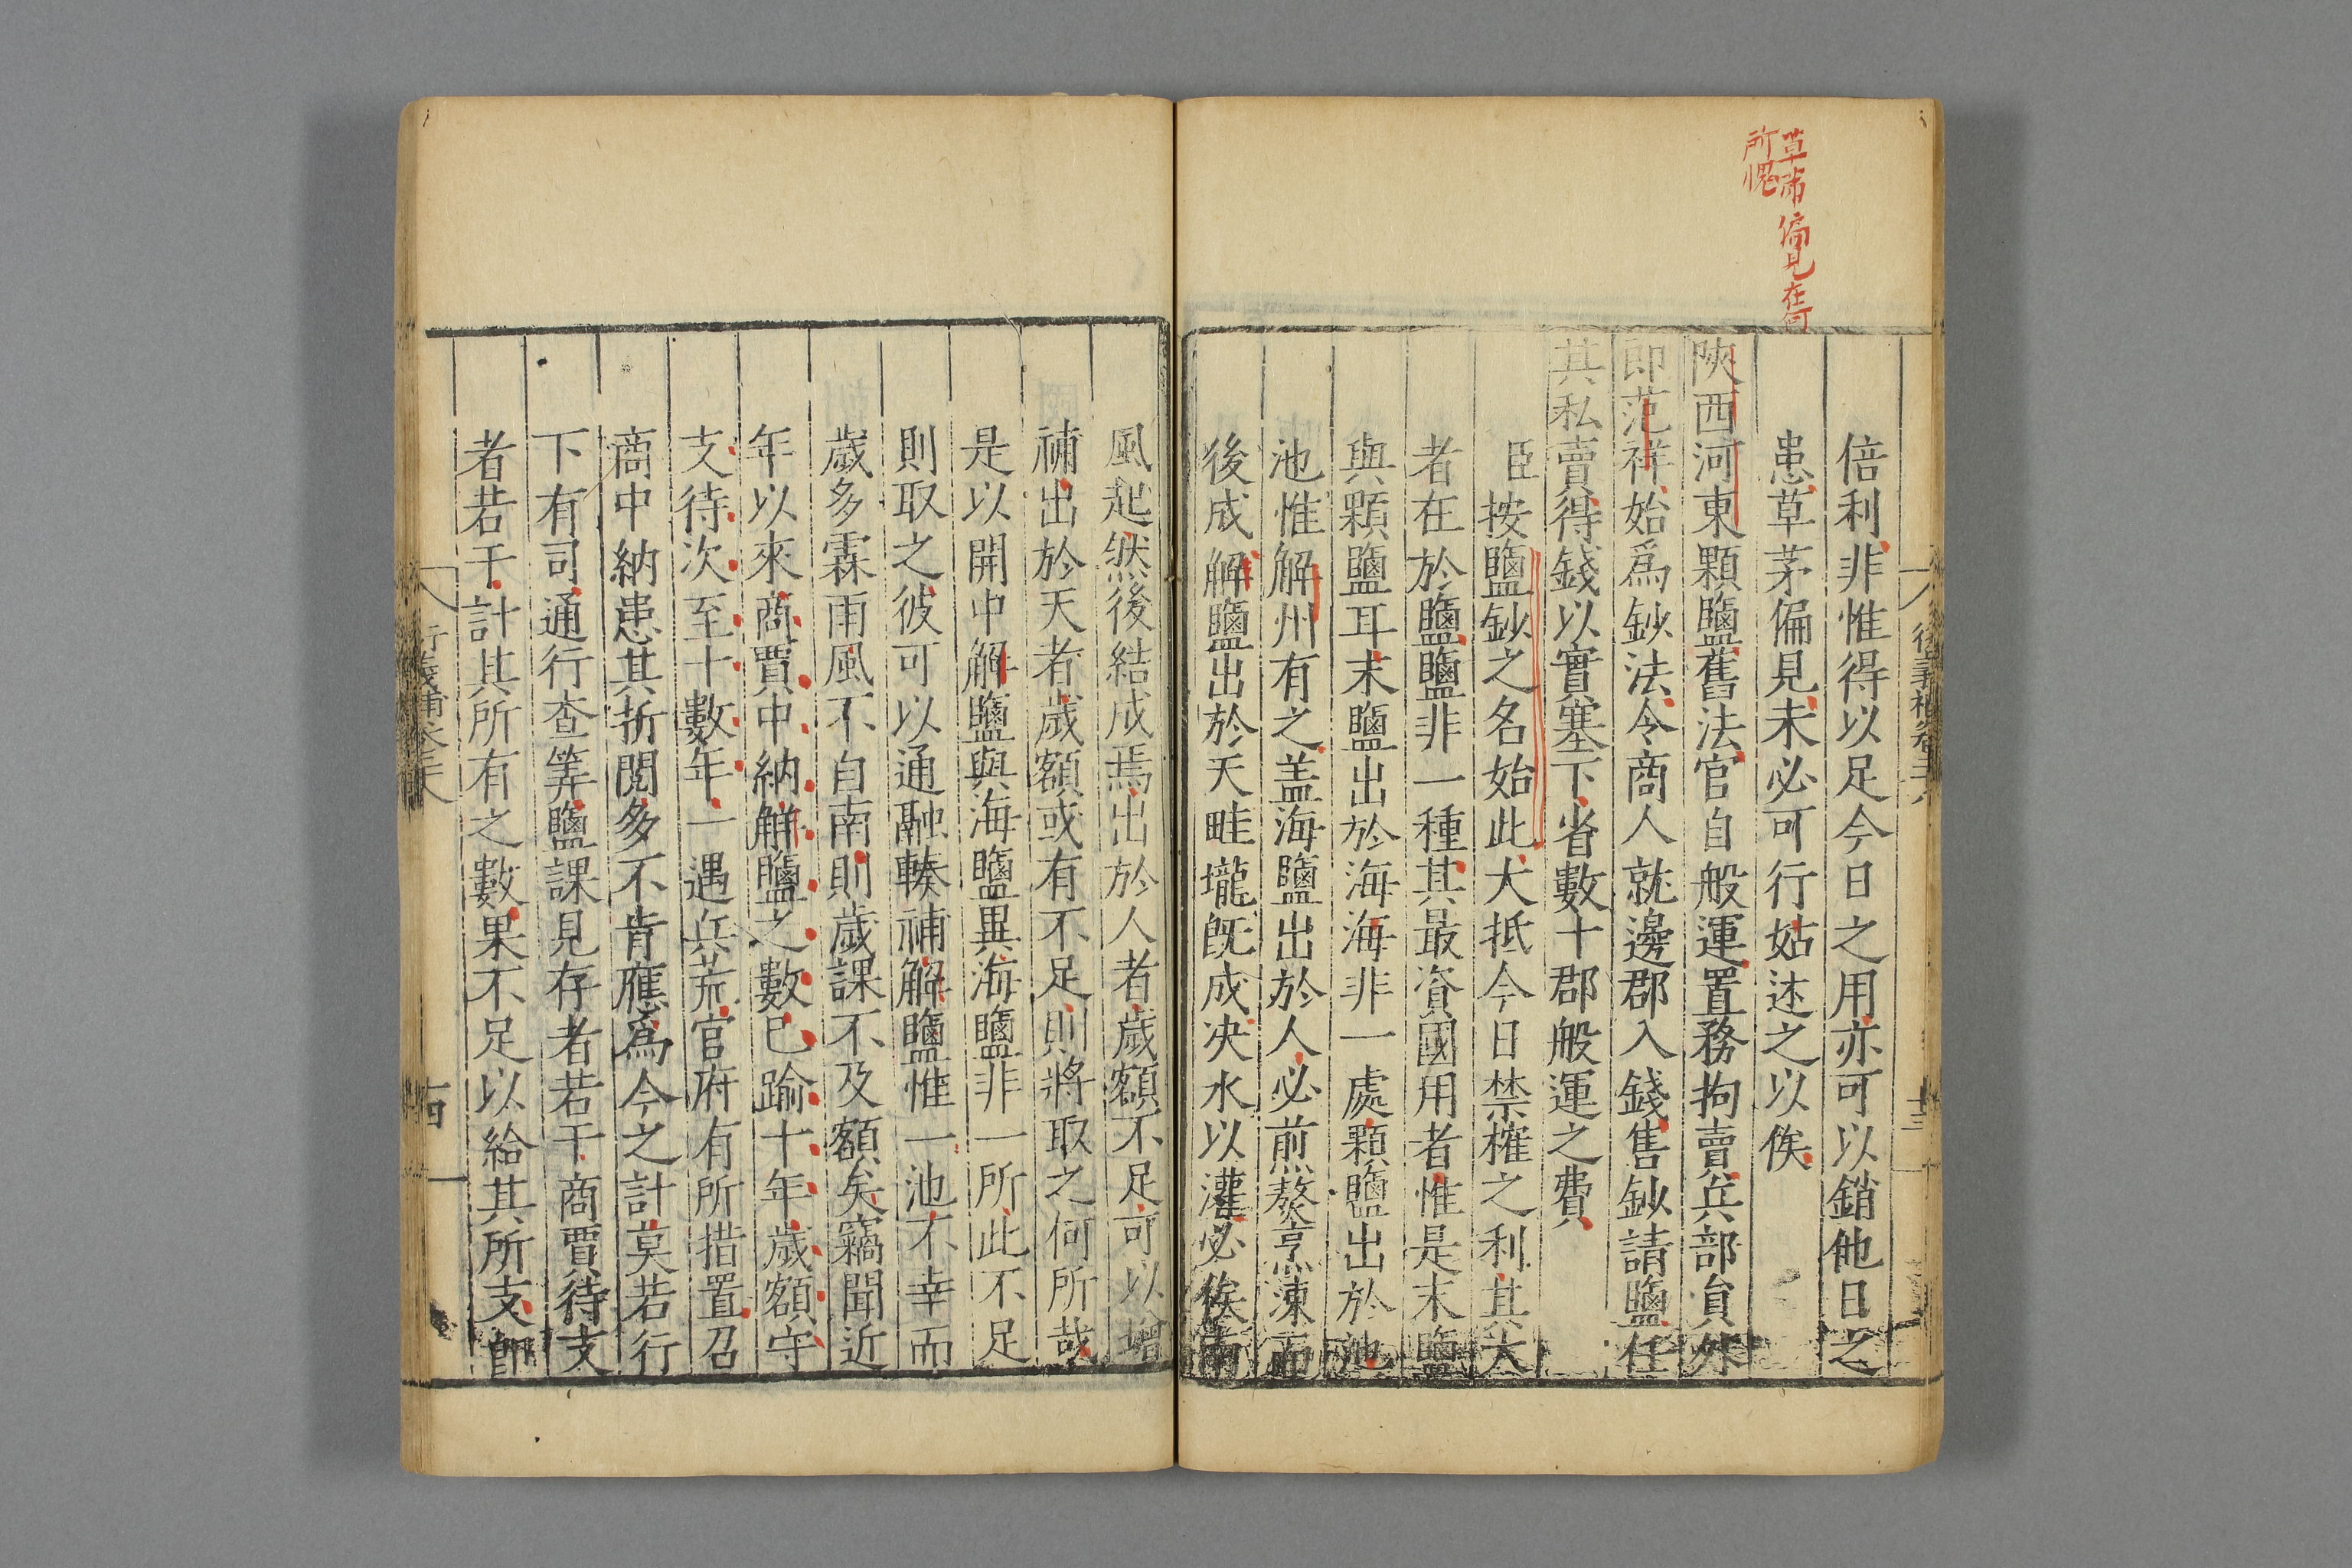 草茅偏見在何
所愧
倍利非惟得以足今日之用亦可以銷他日之
患草茅偏見未必可行姑述之以俟
陜西河東顆鹽舊法官自般運置務拘賣兵部貟外
即范祥始爲鈔法令商人就邊郡入錢售鈔請鹽任
其私賣得錢以實塞下省數十郡般運之費
臣按鹽鈔之名始此大抵今日禁榷之利其大
者在於鹽鹽非一種其最資國用者惟是末鹽
與顆鹽耳末鹽出於海海非一處顆鹽出於池
池惟解州有之盖海鹽出於人必煎熬烹湅而
後成解鹽出於天畦壠旣成决水以灌必俟南
風起然後結成焉出於人者歲額不足可以增
補出於天者歲額或有不足則將取之何所哉
是以開中解鹽與海鹽異海鹽非一所此不足
則取之彼可以通融輳補解鹽惟一池不幸而
歲多霖雨風不自南則歲課不及額矣竊聞近
年以來商賈中納解鹽之數已踰十年歲額守
支待次至十數年一遇兵荒官府有所措置召
商中納患其折閱多不肯應爲今之計莫若行
下有司通行查筭鹽課見存者若干商賈待支
者若干計其所有之數果不足以給其所支即